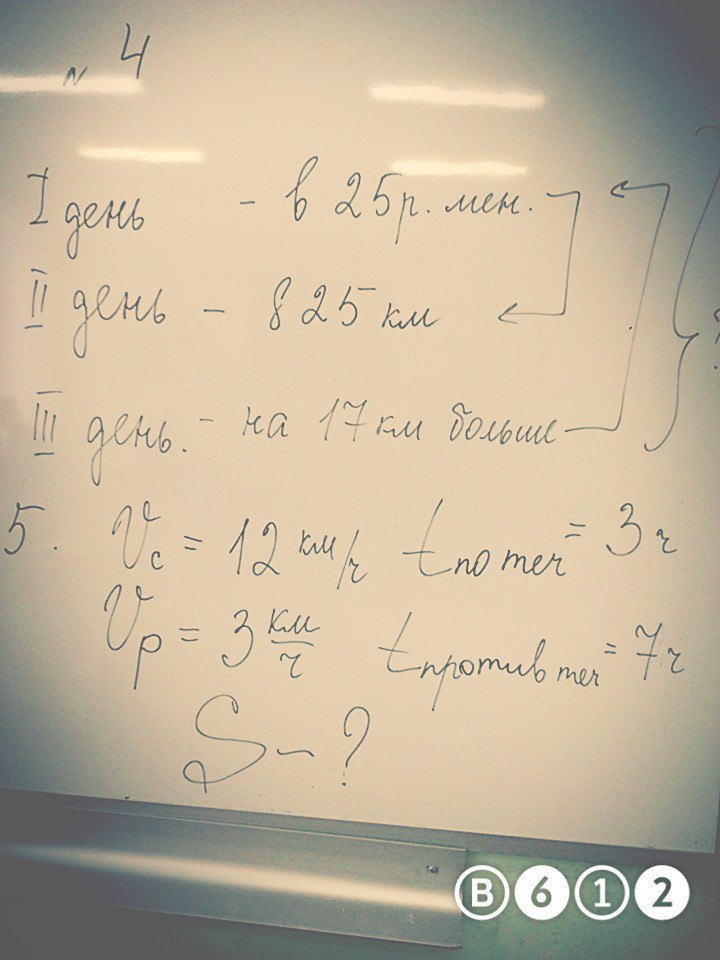 № 4
I день - в 25 р. мен.
II день - 825 км
III день. - на 17 км больше
?
5. Vс = 12 км/ч tпо теч = 3 ч
Vр = 3 км/ч tпротив теч = 7 ч
S - ?
B612